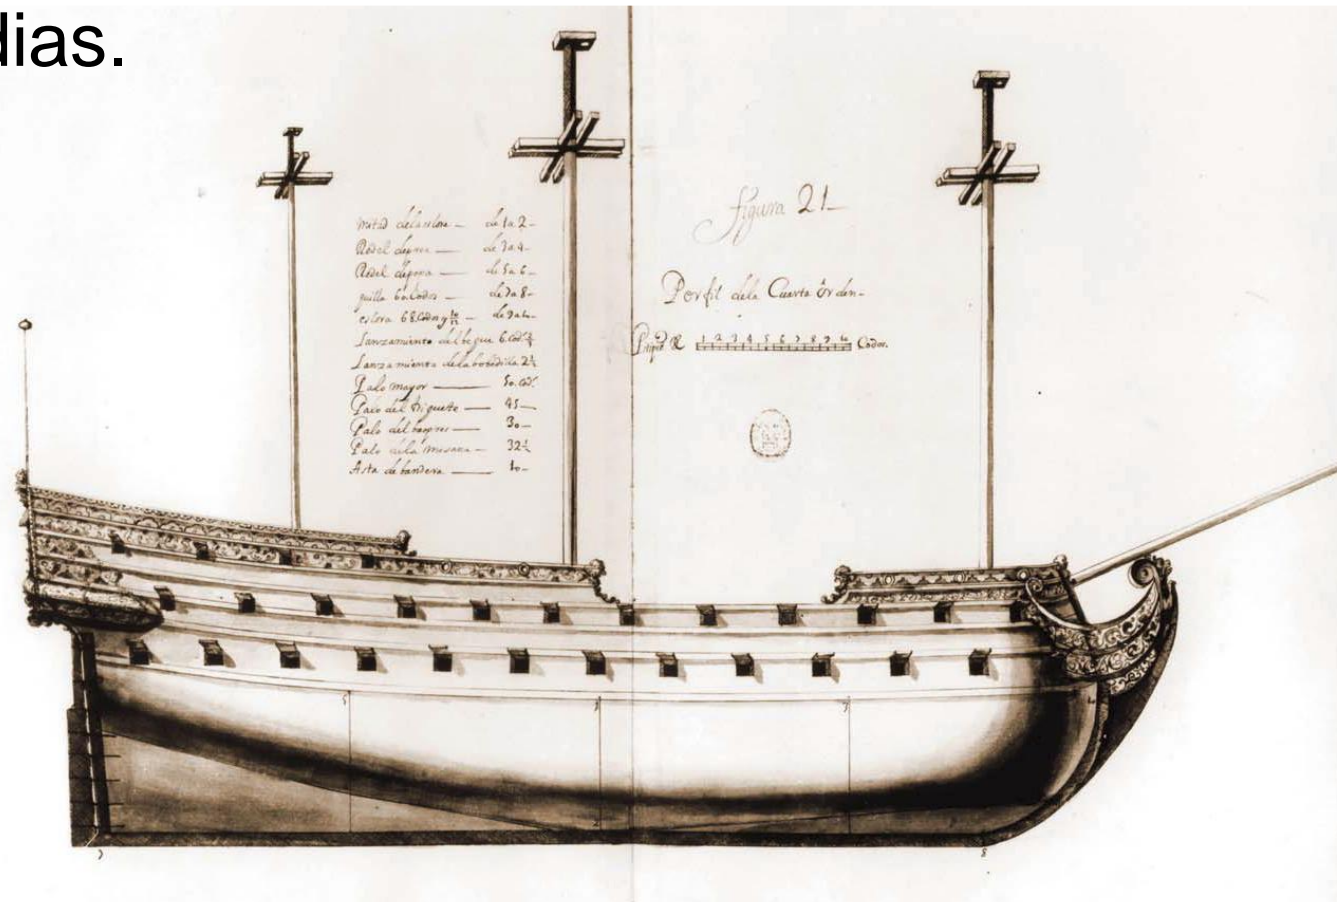 dias.
mitad dela eslora — de 1 a 2 —
Rasel de proa — de 3 a 4 —
Rasel de popa — de 5 a 6 —
quilla 60 Codos — de 7 a 8 —
eslora 68 Codos y 10/12 — de 9 a 10 —
Lanzamiento del 6. Cod.
Lanzamiento dela bobedilla 2½
Palo mayor — 50. Cod.
Palo del triquete — 45 —
Palo del baupres — 30 —
Palo dela Mesana — 32½
Asta de bandera — 10 —
figura 21
Perfil dela Cuarta Orden —
1 2 3 4 5 6 7 8 9 10 Codos.
5
1
3
2
7
8